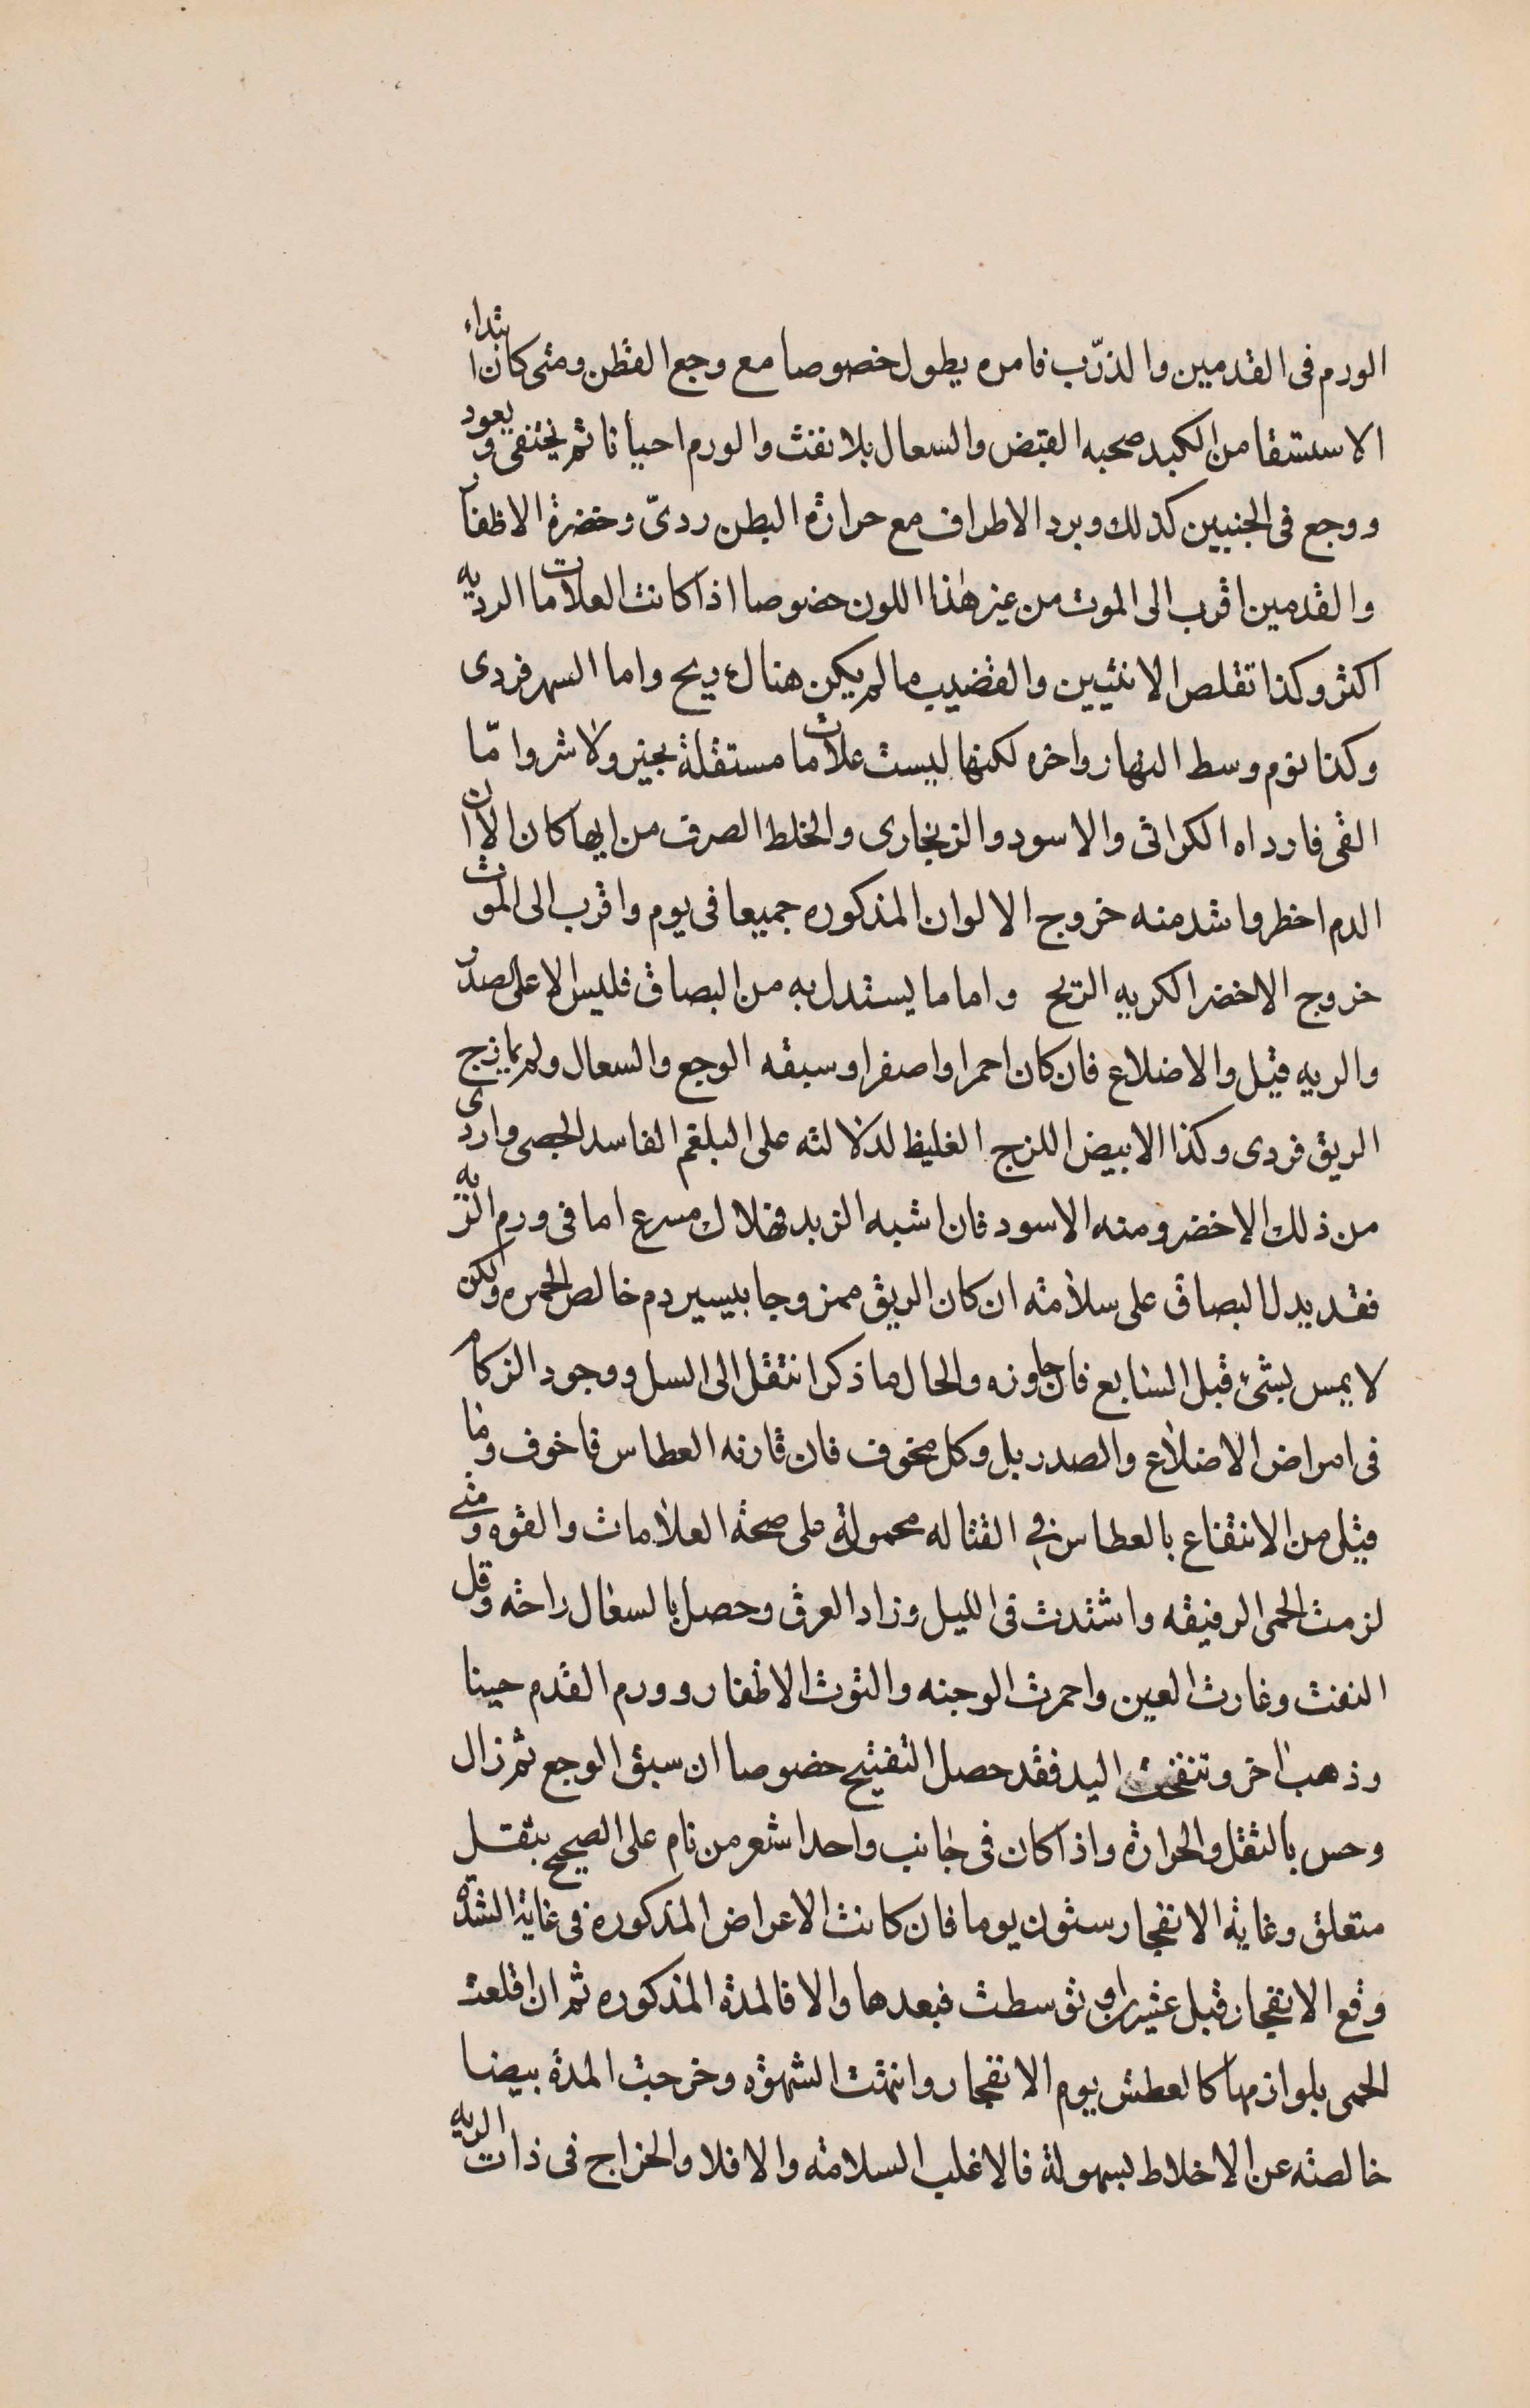 الورم فى القدمين والذرّب فامره يطول خصوصا مع وجع القطن ومتى كان ابتداء
الاستسقا من الكبد صحبه القبض والسعال بلا نفث والورم احيانا ثم يختفى ويعود
ووجع فى الجنبين كذلك وبرد الاطراف مع حرارة البطن ردىّ وخضرة الاظفار
والقدمين اقرب الى الموت من غير هذا اللون خصوصا اذا كانت العلامات الرديه
اكثر وكذا تقلص الانثيين والقضيب ما لم يكن هناك ريح واما السهر فردى
وكذا نوم وسط النهار واخره لكنها ليست علامات مستقلة بخير ولا شر وامّا
القى فارداه الكراثى والاسود والزنجارى والخلط الصرف من ايها كان الا ان
الدم اخطر واشد منه خروج الالوان المذكوره جميعا فى يوم واقرب الى الموت
خروج الاخضر الكريه الريح واما ما يستدل به من البصاق فليس الا على الصدر
والريه قيل والاضلاع فان كان احمرا واصفرا وسبقه الوجع والسعال ولم يمازج
الريق فردى وكذا الابيض اللزج الغليظ لدلالته على البلغم الفاسد الجصى واردى
من ذلك الاخضر ومنه الاسود فان اشبه الزبد فهلاك مسرع اما فى ورم الريه
فقد يدل البصاق على سلامته ان كان الريق ممزوجا بيسير دم خالص الحمره ولكن
لا يمس بشئ قبل السابع فان جاوزه والحال ما ذكر انتقل الى السل ووجود الزكام
فى امراض الاضلاع والصدر بل وكل مخوف فان قارنه العطاس فاخوف وما
قيل من الانتفاع بالعطاس فى القتاله محمولة على صحة العلامات والقوه ومتى
لزمت الحمى الرقيقه واشتدت فى الليل وزاد العرق وحصل بالسعال راحه وقل
النفث وغارت العين واحمرت الوجنه والتوت الاظفار وورم القدم حينا
وذهب اخر وتنفخت اليد فقد حصل التفتيح خصوصا ان سبق الوجع ثم زال
وحس بالثقل والحرارة واذا كان فى جانب واحد اشعر من نام على الصحيح بثقل
متعلق وغاية الانفجار ستون يوما فان كانت الاعراض المذكوره فى غاية الشدّه
وقع الانفجار قبل عشرين او توسطت فبعدها والا فالمدة المذكوره ثم ان اقلعت
الحمى بلوازمها كالعطش يوم الانفجار وانهتت الشهوه وخرجت المدة بيضا
خالصته عن الاخلاط بسهولة فالاغلب السلامته والا فلا والخراج فى ذات الريه